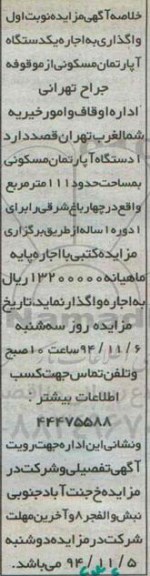 خلاصه آگهی مزایده نوبت اول
واگذاری به اجاره یکدستگاه
آپارتمان مسکونی از موقوفه
جراح تهرانی
اداره اوقاف و امور خیریه
شمالغرب تهران قصد دارد
۱ دستگاه آپارتمان مسکونی
بمساحت حدود ۱۱۱ متر مربع
واقع در چهارباغ شرقی را برای
۱ دوره ۱ ساله از طریق برگزاری
مزایده کتبی با اجاره پایه
ماهیانه ۱۳۲۰۰۰۰۰ ریال
به اجاره واگذار نماید. تاریخ
مزایده روز سه شنبه
۹۴/۱۱/۶ ساعت ۱۰ صبح
و تلفن تماس جهت کسب
اطلاعات بیشتر :
۴۴۴۷۵۵۸۸
و نشانی این اداره جهت رویت
آگهی تفصیلی و شرکت در
مزایده خ جنت آباد جنوبی
نبش والفجر ۸ و آخرین مهلت
شرکت در مزایده دوشنبه
۹۴/۱۱/۵ می باشد.